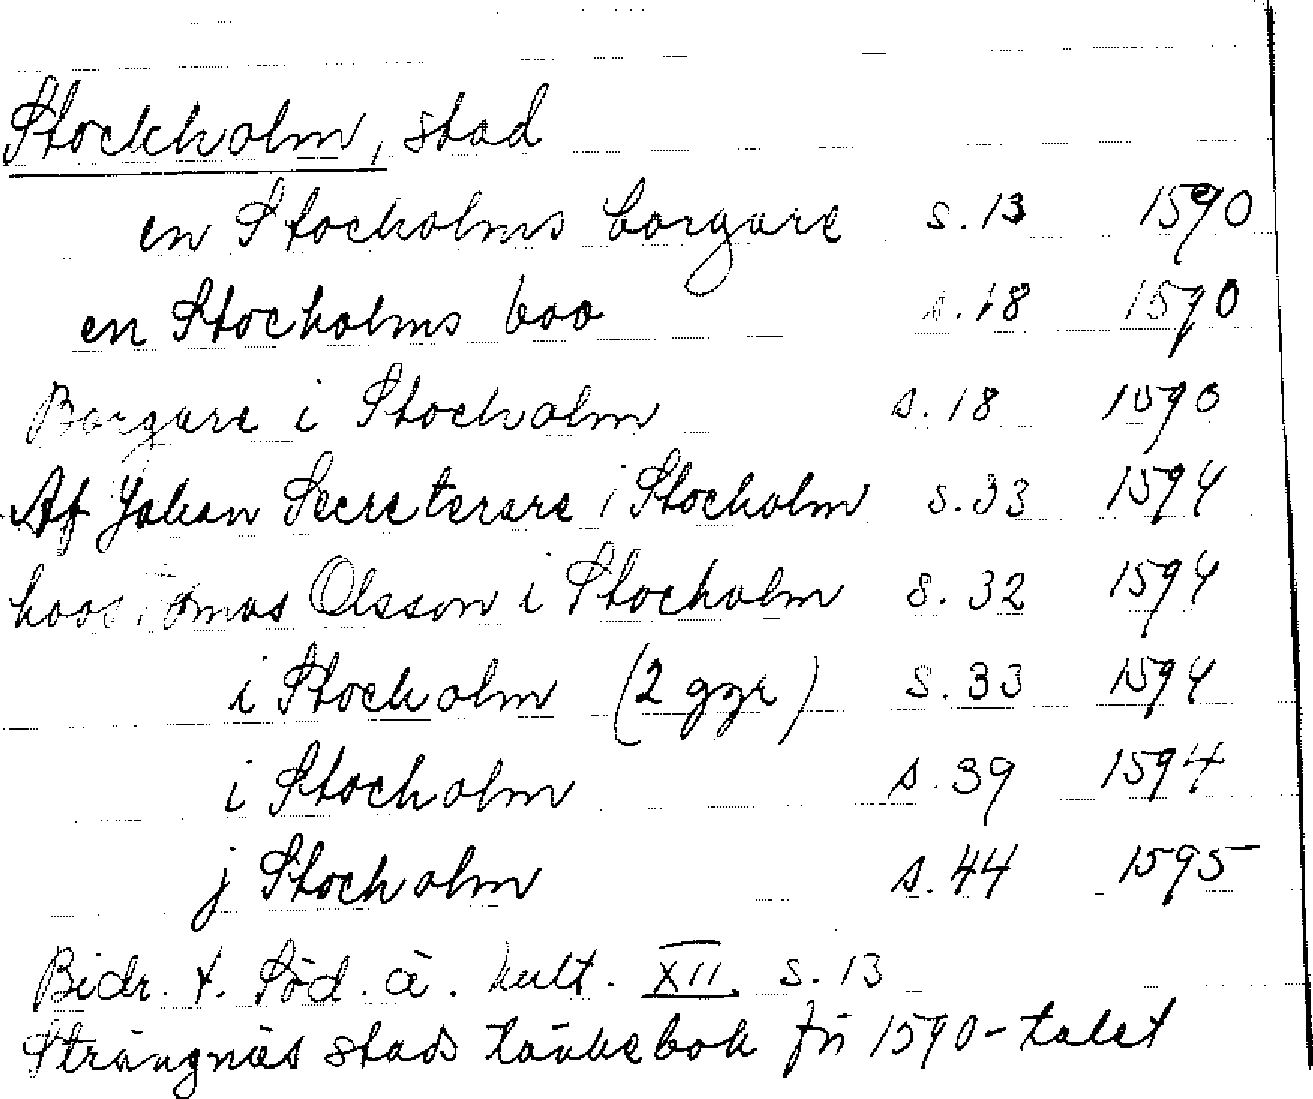 Stockholm, stad
en Stocholms borgare s. 13 1590
en Stocholms boo s. 18 1590
Borgare i Stocholm s. 18 1590
Af Johan Secreterare i Stocholm s. 33 1594
hoos Tomas Olsson i Stocholm s. 32 1594
i Stocholm (2 ggr) s. 33 1594
i Stocholm s. 39 1594
j Stocholm s. 44 1595
Bidr. t. Söd. ä. kult. XII. s. 13
Strängnäs stads tänkebok fr 1590-talet